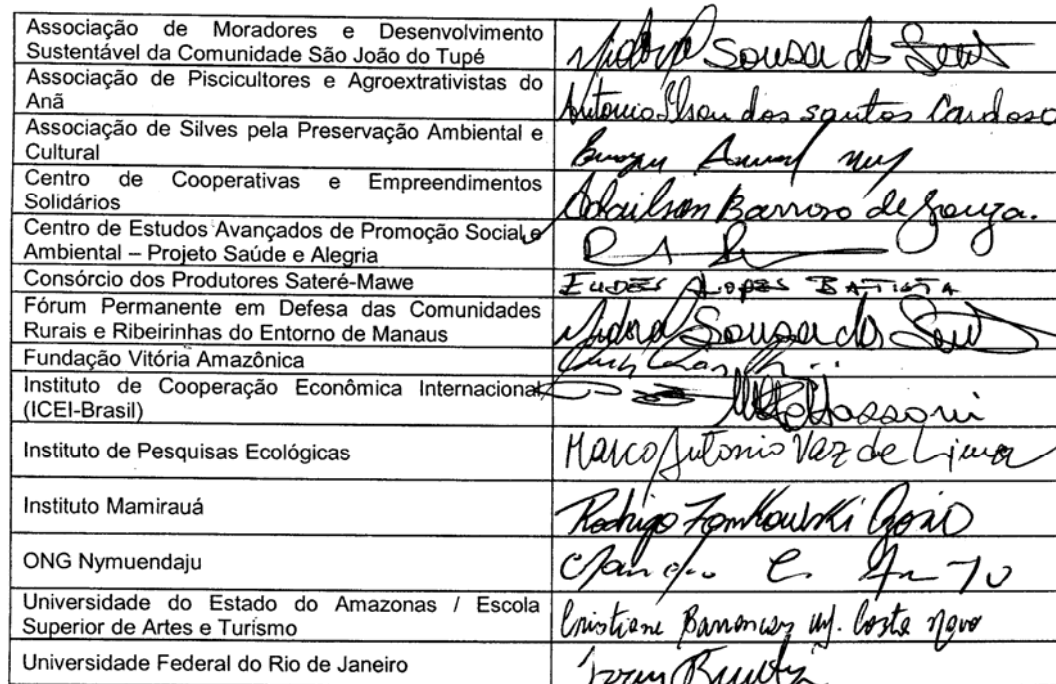 Associação de Moradores e Desenvolvimento
Sustentável da Comunidade São João do Tupé
Sousa dos
Associação de Piscicultores e Agroextrativistas do
Anã
Antonio dos santos Cardoso
Associação de Silves pela Preservação Ambiental e
Cultural
Centro de Cooperativas e Empreendimentos
Solidários
Adailson Barroso de Souza.
Centro de Estudos Avançados de Promoção Social e
Ambiental – Projeto Saúde e Alegria
Consórcio dos Produtores Sateré-Mawe
EUDES LOPES BATISTA
Fórum Permanente em Defesa das Comunidades
Rurais e Ribeirinhas do Entorno de Manaus
Sousa dos
Fundação Vitória Amazônica
Instituto de Cooperação Econômica Internacional
(ICEI-Brasil)
Instituto de Pesquisas Ecológicas
Marco Antonio Vaz de Lima
Instituto Mamirauá
Rodrigo
ONG Nymuendaju
Universidade do Estado do Amazonas / Escola
Superior de Artes e Turismo
Cristiane Barroncas Costa Novo
Universidade Federal do Rio de Janeiro